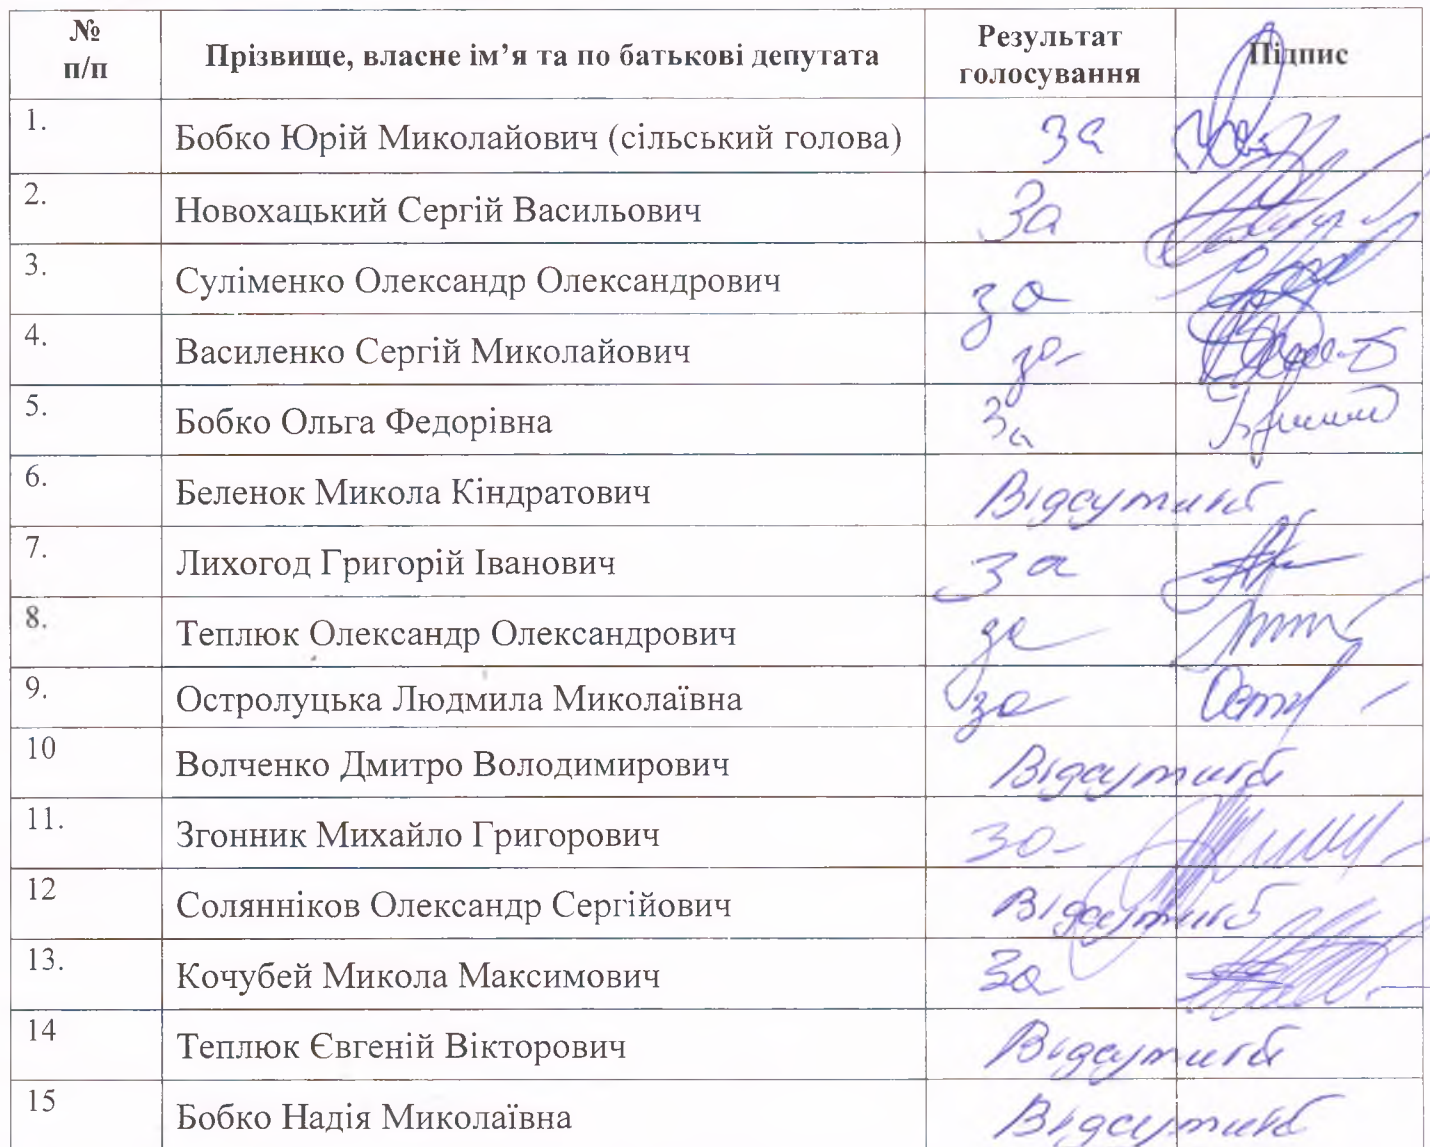 № п/п Прізвище, власне ім’я та по батькові депутата Результат голосування Підпис
1. Бобко Юрій Миколайович (сільський голова) за
2. Новохацький Сергій Васильович За
3. Суліменко Олександр Олександрович за
4. Василенко Сергій Миколайович за
5. Бобко Ольга Федорівна За
6. Беленок Микола Кіндратович Відсутній
7. Лихогод Григорій Іванович за
8. Теплюк Олександр Олександрович за
9. Остролуцька Людмила Миколаївна за
10 Волченко Дмитро Володимирович Відсутній
11. Згонник Михайло Григорович за
12 Солянніков Олександр Сергійович Відсутній
13. Кочубей Микола Максимович За
14 Теплюк Євгеній Вікторович Відсутній
15 Бобко Надія Миколаївна